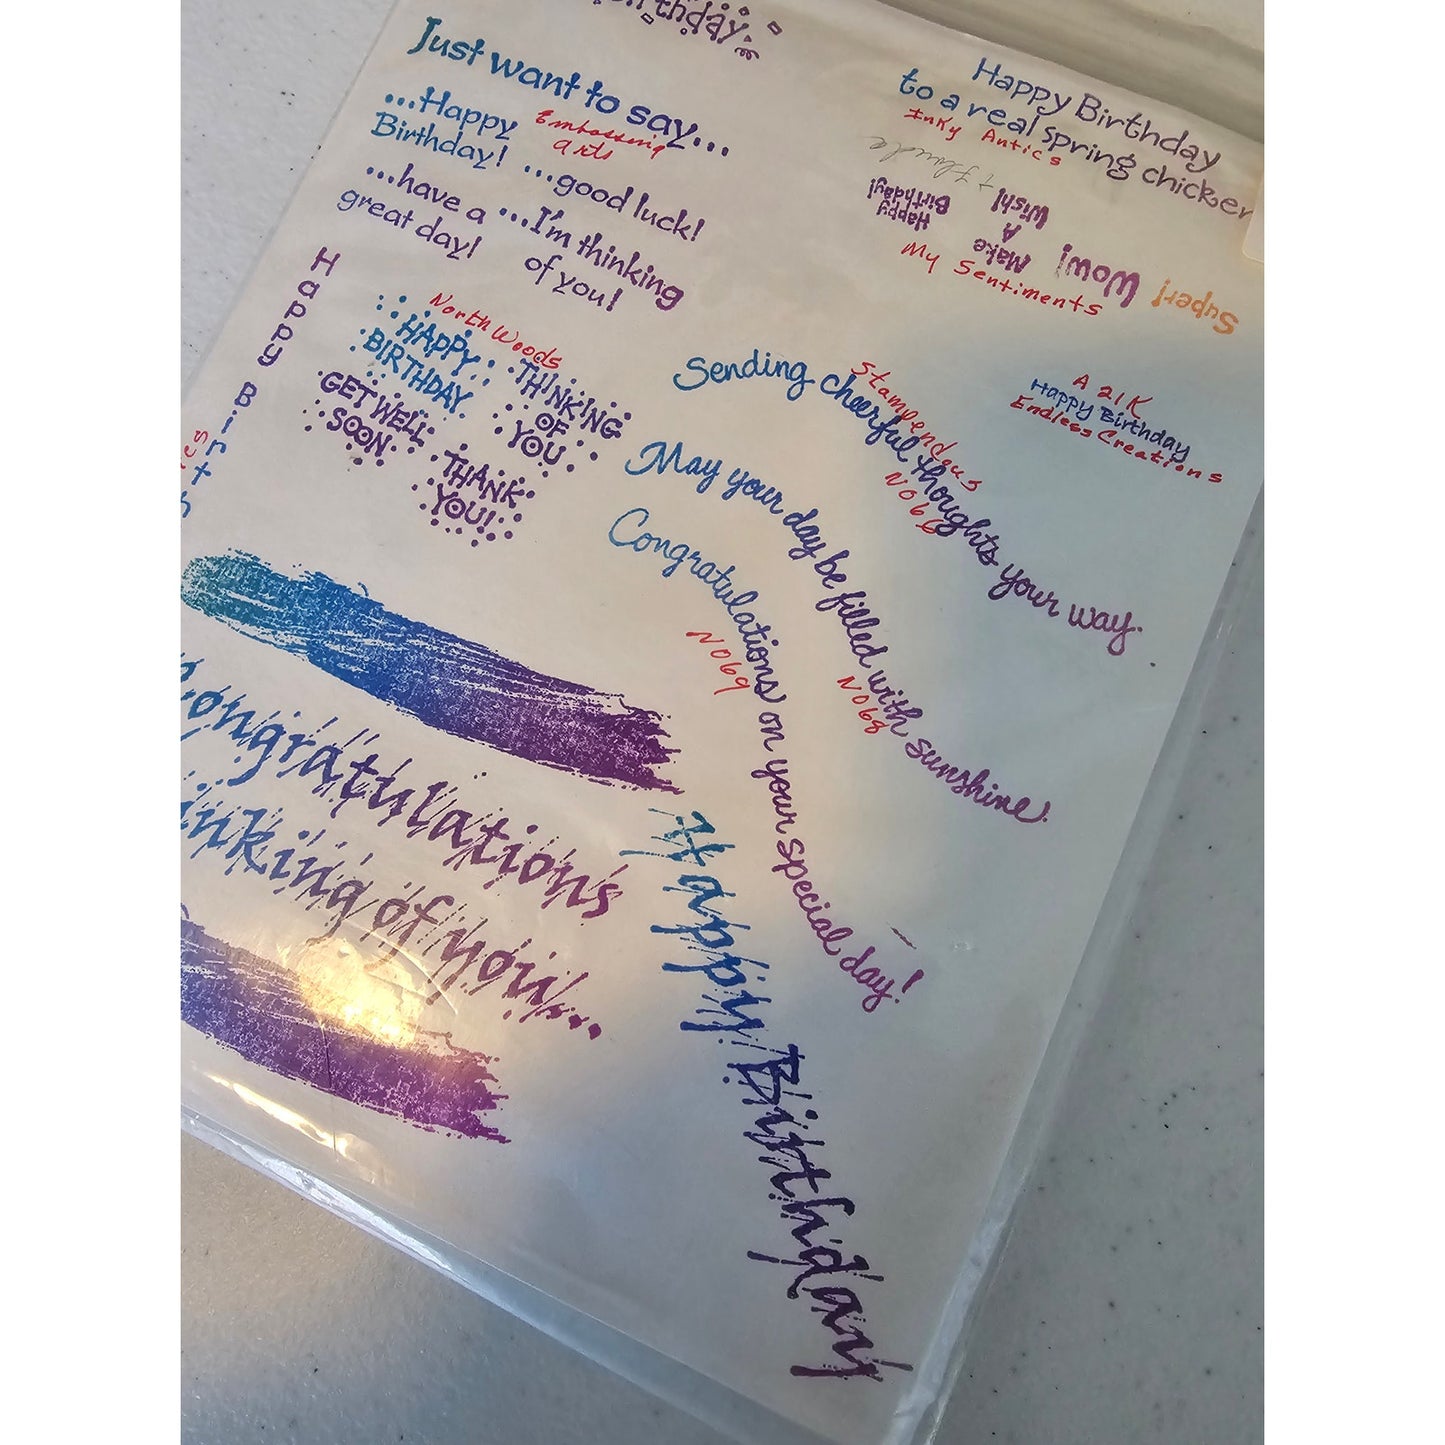 Birthday
Just want to say...
...Happy
Birthday!
Embossing
arts
...good luck!
...have a
great day!
...I'm thinking
of you!
Happy Birthday
to a real spring chicken
Inky Antics
Happy
Birthday!
Make
A
Wish!
Wow!
Super!
My Sentiments
Happy Birt
North Woods
HAPPY
BIRTHDAY
THINKING
OF
YOU
GET WELL
SOON
THANK
YOU!
Sending cheerful thoughts your way.
Stampendous
N066
A 21K
Happy Birthday
Endless Creations
May your day be filled with sunshine.
N068
Congratulations on your special day!
N069
Congratulations
inking of you...
Happy Birthday